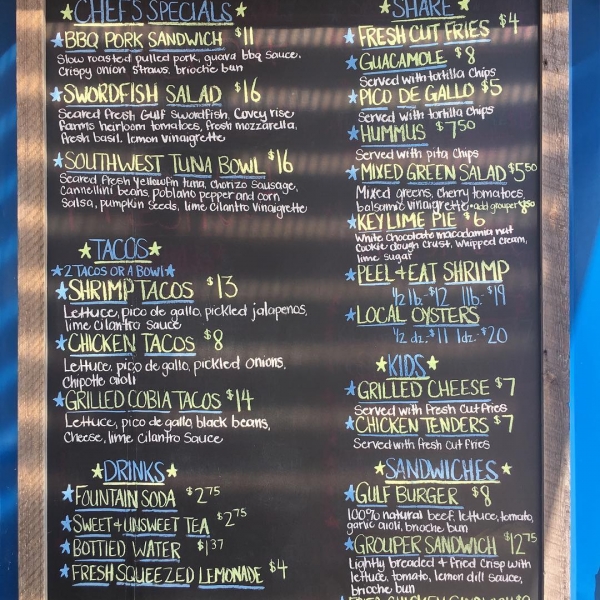 CHEF'S SPECIALS
BBQ PORK SANDWICH $11
Slow roasted pulled pork, guava bbq sauce,
Crispy onion straws, brioche bun
SWORDFISH SALAD $16
Seared fresh Gulf Swordfish, Covey rise
farms heirloom tomatoes, fresh mozzarella,
fresh basil, lemon vinaigrette
SOUTHWEST TUNA BOWL $16
Seared Fresh Yellowfin tuna, Chorizo Sausage,
Cannellini beans, poblano pepper and corn
Salsa, pumpkin seeds, lime cilantro vinaigrette
TACOS
2 TACOS OR A BOWL
SHRIMP TACOS $13
Lettuce, pico de gallo, pickled jalapenos,
lime cilantro sauce
CHICKEN TACOS $8
Lettuce, pico de gallo, pickled onions,
chipotle aioli
GRILLED COBIA TACOS $14
Lettuce, pico de gallo, black beans,
Cheese, lime cilantro Sauce
DRINKS
FOUNTAIN SODA $2.75
SWEET & UNSWEET TEA $2.75
BOTTLED WATER $1.37
FRESH SQUEEZED LEMONADE $4
SHARE
FRESH CUT FRIES $4
GUACAMOLE $8
Served with tortilla chips
PICO DE GALLO $5
Served with tortilla chips
HUMMUS $7.50
Served with pita chips
MIXED GREEN SALAD $5.50
Mixed greens, cherry tomatoes
balsamic vinaigrette • add grouper $8.50
KEY LIME PIE $6
White chocolate macadamia nut
cookie dough crust, whipped cream,
lime sugar
PEEL & EAT SHRIMP
1/2 lb.- $12 1lb.- $19
LOCAL OYSTERS
1/2 dz.- $11 1dz.- $20
KIDS
GRILLED CHEESE $7
Served with fresh cut fries
CHICKEN TENDERS $7
Served with fresh cut fries
SANDWICHES
GULF BURGER $8
100% natural beef, lettuce, tomato,
garlic aioli, brioche bun
GROUPER SANDWICH $12.75
Lightly breaded & fried crisp with
lettuce, tomato, lemon dill sauce,
brioche bun
FRIED CHICKEN SANDWICH $9